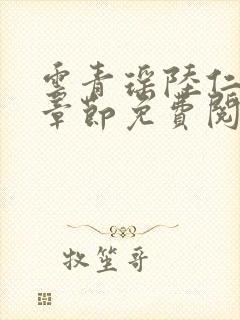 雲青瑤陸仁
章節免費閱
牧笙哥